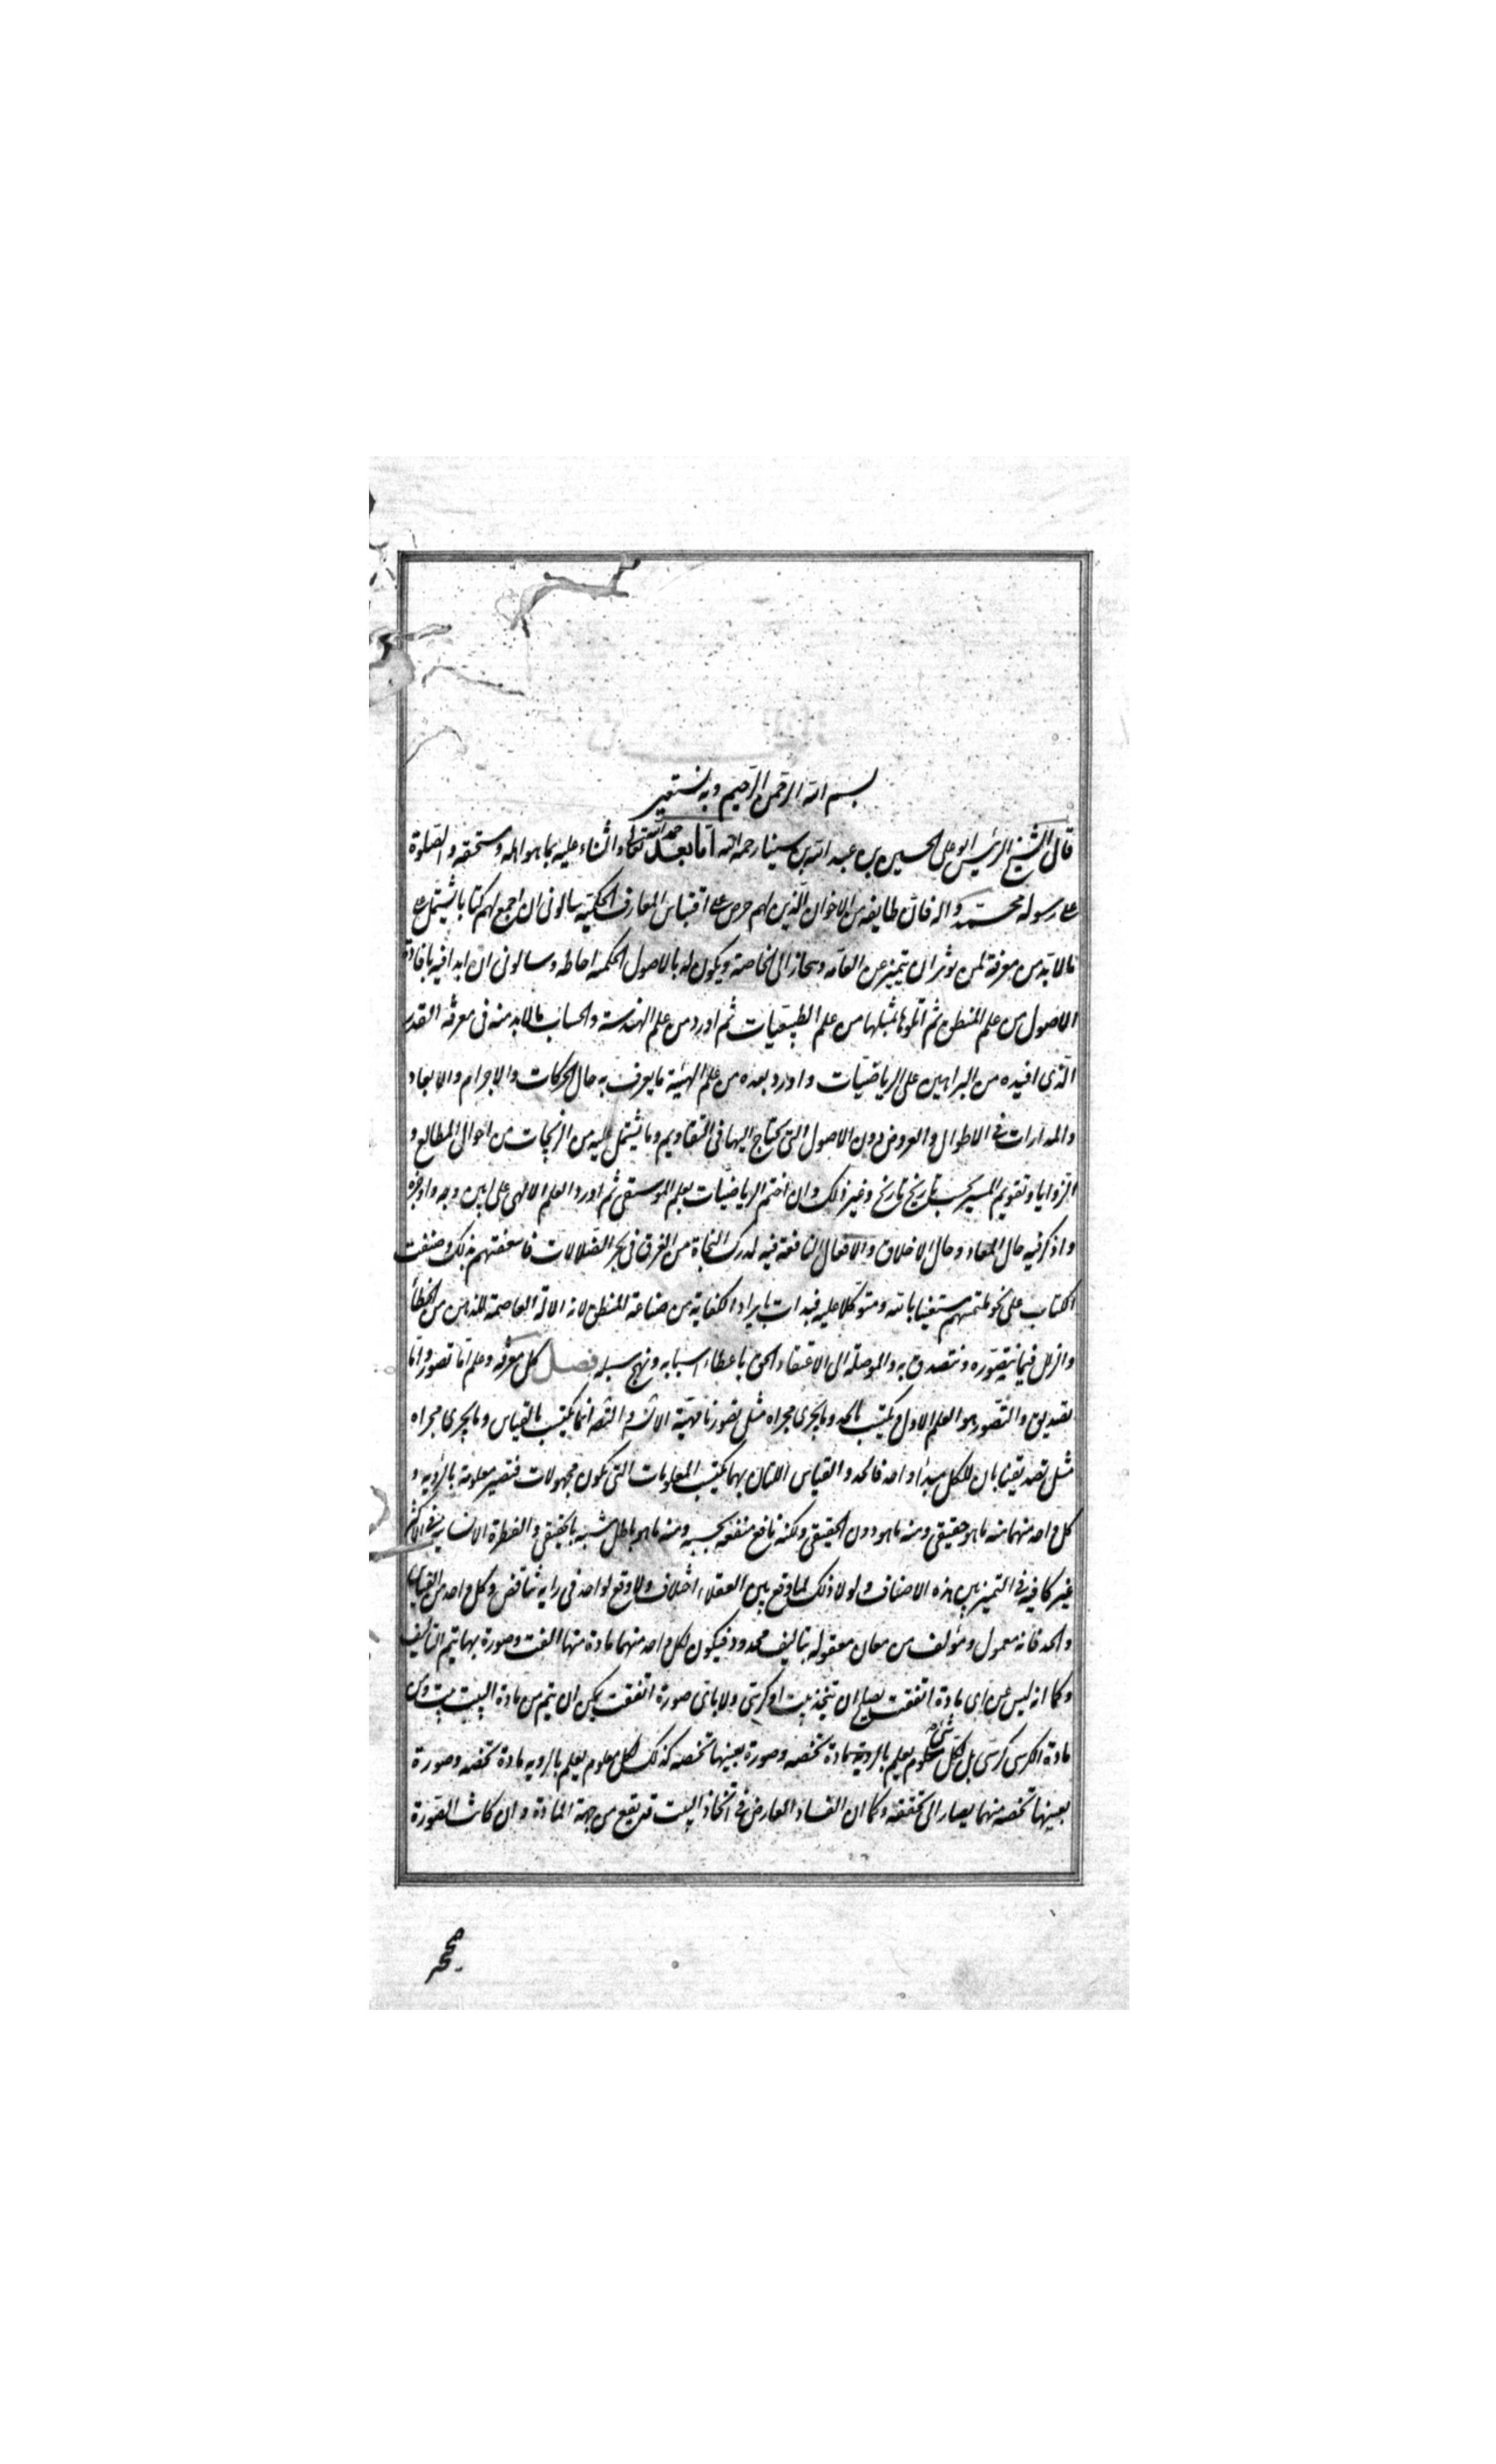 بسم الله الرحمن الرحيم وبه نستعين
قال الشيخ الرئيس ابو على الحسين بن عبد الله بن سينا رحمه الله اما بعد حمد الله تعالى والثناء عليه بما هو اهله ومستحقه والصلوة
على رسوله محمد واله فان طايفه من الاخوان الذين لهم حرص على اقتباس المعارف الحكمية سالونى ان اجمع لهم كتابا يشتمل على
مالا بد من معرفة لمن يوثر ان يتميز عن العامه وينحاز الى الخاصة ويكون له بالاصول الحكمية احاطه وسالونى ان ابدا فيه بافادة
الاصول من علم المنطق ثم اتلوها بمثلها من علم الطبيعيات ثم اورد من علم الهندسة والحساب مالا بد منه فى معرفة القدر
الذى افيده من البراهين على الرياضيات واورد بعده من علم الهيئة ما يعرف به حال الحركات والاجرام والابعاد
والمدارات فى الاطوال والعروض دون الاصول التى يحتاج اليها فى التقاويم وما يشتمل عليه من الزيجات من احوال المطالع و
الزوايا وتقويم المسير بحسب تاريخ تاريخ وغير ذلك وان اختم الرياضيات بعلم الموسيقى ثم اورد العلم الالهى على ابين وجه واوجزه
واذكر فيه حال المعاد وحال الاخلاق والافعال النافعة فيه لدرك النجاة من الغرق فى بحر الضلالات فاسعفتهم بذلك وصنفت
الكتاب على نحو ملتمسهم مستعينا بالله ومتوكلا عليه فبدات بايراد الكفاية من صناعة المنطق لانه الالة العاصمة للذهن من الخطأ
والزلل فيما نتصوره ونتصدق به والموصلة الى الاعتقاد الحق باعطاء اسبابه ونهج سبله فصل كل معرفة وعلم اما تصور واما
تصديق والتصور هو العلم الاول ويكتسب بالحد وما يجرى مجراه مثل تصورنا مهية الانسان والتصديق انما يكتسب بالقياس وما يجرى مجراه
مثل تصديقنا بان للكل مبدأ واحد فالحد والقياس التان بهما يكتسب المعلومات التى تكون مجهولات فتصير معلومة بالروية و
كل واحد منهما منه ما هو حقيقى ومنه ما هو دون الحقيقى ولكنه نافع منفعة بحسبه ومنه ما هو باطل مشبه بالحقيقى والفطرة الانسانية فى الاكثر
غير كافية فى التمييز بين هذه الاصناف ولولا ذلك لما وقع بين العقلاء اختلاف ولا وقع لواحد فى رايه تناقض وكل واحد من القياس
والحد فانه معمول ومؤلف من معان معقوله بتاليف محدود فيكون لكل واحد منهما مادة منها الفت وصورة بها يتم التاليف
وكما انه ليس عن اى مادة اتفقت يصلح ان يتخذ بيت او كرسى ولا باى صورة اتفقت يمكن ان يتم من مادة البيت بيت ومن
مادة الكرسى كرسى بل لكل شئ معلوم يعلم بالروية مادة تخصه وصورة بعينها تخصه كذلك لكل معلوم يعلم بالرويه مادة تخصه وصورة
بعينها تخصه منهما يصار الى تحققه وكما ان الفساد العارض فى اتخاذ البيت قد يقع من جهة المادة وان كانت الصورة
صحيحة